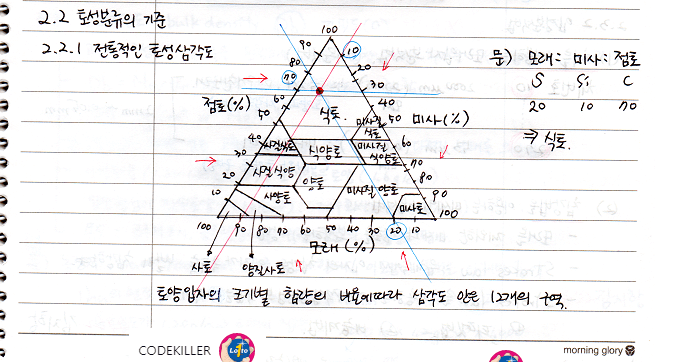 2.2 토성분류의 기준
2.2.1 전통적인 토성삼각도
문) 모래: 미사: 점토
S Si C
20 10 70
⇒ 식토.
점토(%)
미사(%)
모래(%)
100
90 10
80 20
70 30
60 40
50 50
40 60
30 70
20 80
10 90
100 90 80 70 60 50 40 30 20 10 100
식토.
미사질
식토
사질식토
식양토
미사질
식양토
사질식양
양토
미사질 양토
사양토
미사토
사토
양질사토
토양입자의 크기별 함량의 비율에따라 삼각도 안은 12개의 구역.
CODEKILLER
Lofto
morning glory